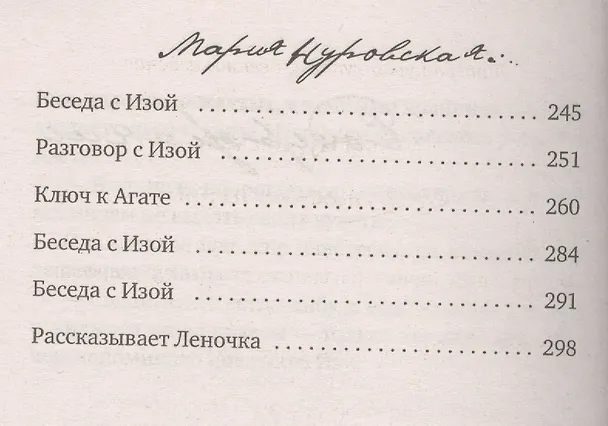 Мария Нуровская...
Беседа с Изой 245
Разговор с Изой 251
Ключ к Агате 260
Беседа с Изой 284
Беседа с Изой 291
Рассказывает Леночка 298